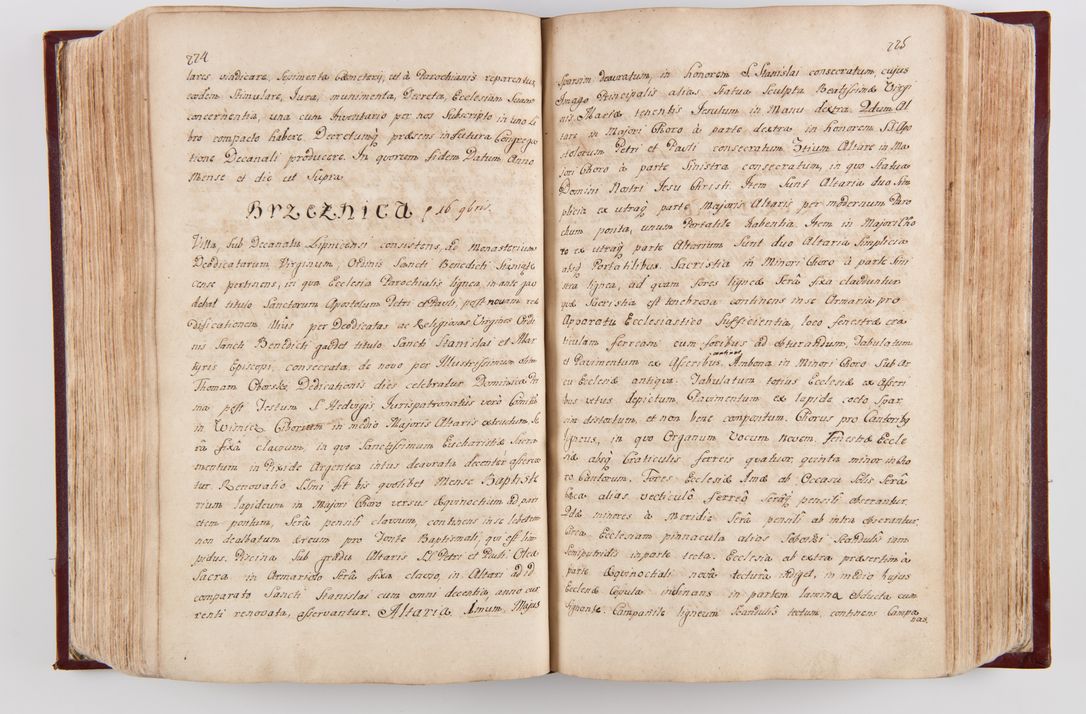 224
lares vindicare, Sepimenta Cæmeterij, ut à Parochianis reparentur,
eosdem stimulare, Jura, munimenta, Decreta, Ecclesiam Suam
concernentia, una cum Inventario per nos Subscripto in uno Li
bro compacto habere. Decretumq præsens in futura Congrega
tione Decanali producere. In quorum fidem Datum Anno
Mense et die ut Supra
Brzeznica p 16 9bris.
Villa, Sub Decanatu Lipnicensi consistens, ad Monasterium
Deodicatarum Virginum, Ordinis Sancti Benedicti Staniąt
cense pertinens, in qua Ecclesia Parochialis lignea, in ante gau
debat titulo Sanctorum Apostolum Petri et Pauli, post novam re
ædificationem illius per Deodicatas ac Religiosas Virgines Ordi
nis Sancti Benedicti gaudet titulo Sancti Stanislai et Mar
tyris Episcopi, consecrata de novo per Illustrissimum olim
Thomam Oborski, Dedicationis dies celebratur Dominica Pri
ma post Festum S. Hedvigis, Jurispatronatûs verò Comitū
in Wisnicz. Ciborium in medio Majoris Altaris extructum, Se
râ fixâ clausum, in quo Sanctissimum Eucharistiæ Sacra
mentum in Pixide Argentea intus deaurata decentèr asserva
tur. Renovatio SSmi fit bis quolibet Mense. Baptist
erium lapideum in Majori Choro versus Æquinoctium ad pari
etem positum, Serâ pensili clausum, continens in se lebetem
non dealbatum æreum pro Fonte Baptismali, qui est lim
pidus. Piscina Sub gradu Altaris SS Petri et Pauli. Olea
Sacra in Armariolo Serâ fixa clauso, in Altari ad id
comparato Sancti Stanislai cum omni decentia, anno cur
renti renovata, asservantur. Altaria. Imum, Majus
225
Sparsim deauratum, in honorem S. Stanislai consecratum, cujus
Imago Principalis alias Statua Sculpta Beatissimæ Virgi
nis Mariæ tenentis Jesulum in Manu dextra. 2dum Al
tare in Majori Choro à parte dextra in honorem SS Apo
stolorum Petri et Pauli consecratum. 3tium Altare in Ma
jori Choro à parte Sinistra consecratum, in quo Statua
Domini Nostri Jesu Christi. Item Sunt Altaria duo Sim
plicia ex utraq parte Majoris Altaris per modernum Paro
chum posita, unum Portatile habentia. Item in Majori Cho
ro ex utraq parte Altarium Sunt duo Altaria Simplicia
absq Portatilibus. Sacristia in Minori Choro à parte Sini
stra lignea, ad quam fores ligneæ Serâ fixa clauduntur
quæ Sacristia est tenebrosa continens in se Armaria pro
Apparatu Ecclesiastico Sufficientia, loco fenestræ cra
ticulam ferream cum foribus ad obturandum, Tabulatum
et Pavimentum ex Asseribus. Ambona in Minori Choro Sub Ar
cu Ecclesiæ antiqua. Tabulatum totius Ecclesiæ ex Asseri
bus vetus depictum. Pavimentum ex lapide cocto Spar
sim distortum, et non bene compositum. Chorus pro Cantoribq
ligneus, in quo Organum Vocum Novem. Fenestræ Eccle
siæ absq Craticulis ferreis quatuor, quinta minor in Cho
ro Cantorum. Fores Ecclesiæ Imæ ab Occasu Solis Serâ
bæca alias vecticulô ferreô Serâq pensili obserantur.
2dæ minores à Meridie Serâ pensili ab intra obserantur.
Circa Ecclesiam pinnacula alias Soboski Scandulis jam
Semiputridis in parte tecta. Ecclesia ab extra præsertim à
parte Æquinoctiali novâ tecturâ indiget, in medio hujus
Ecclesiæ Copula in partem lamina obducta cum
Signonse. Campanile ligneum Scandulis tectum, continens Campa
nas.